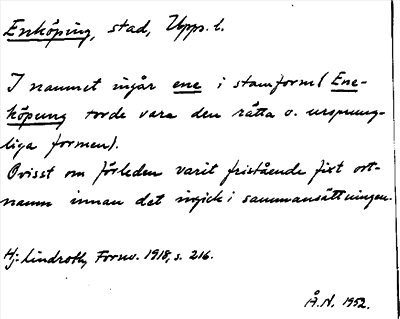 Enköping, stad, Upps. l.
I namnet ingår ene i stamform (Ene-
köpung torde vara den rätta o. ursprung-
liga formen).
Ovisst om förleden varit fristående fixt ort-
namn innan det ingick i sammansättningen.
Hj. Lindroth, Fornv. 1918, s. 216.
Å.N. 1952.